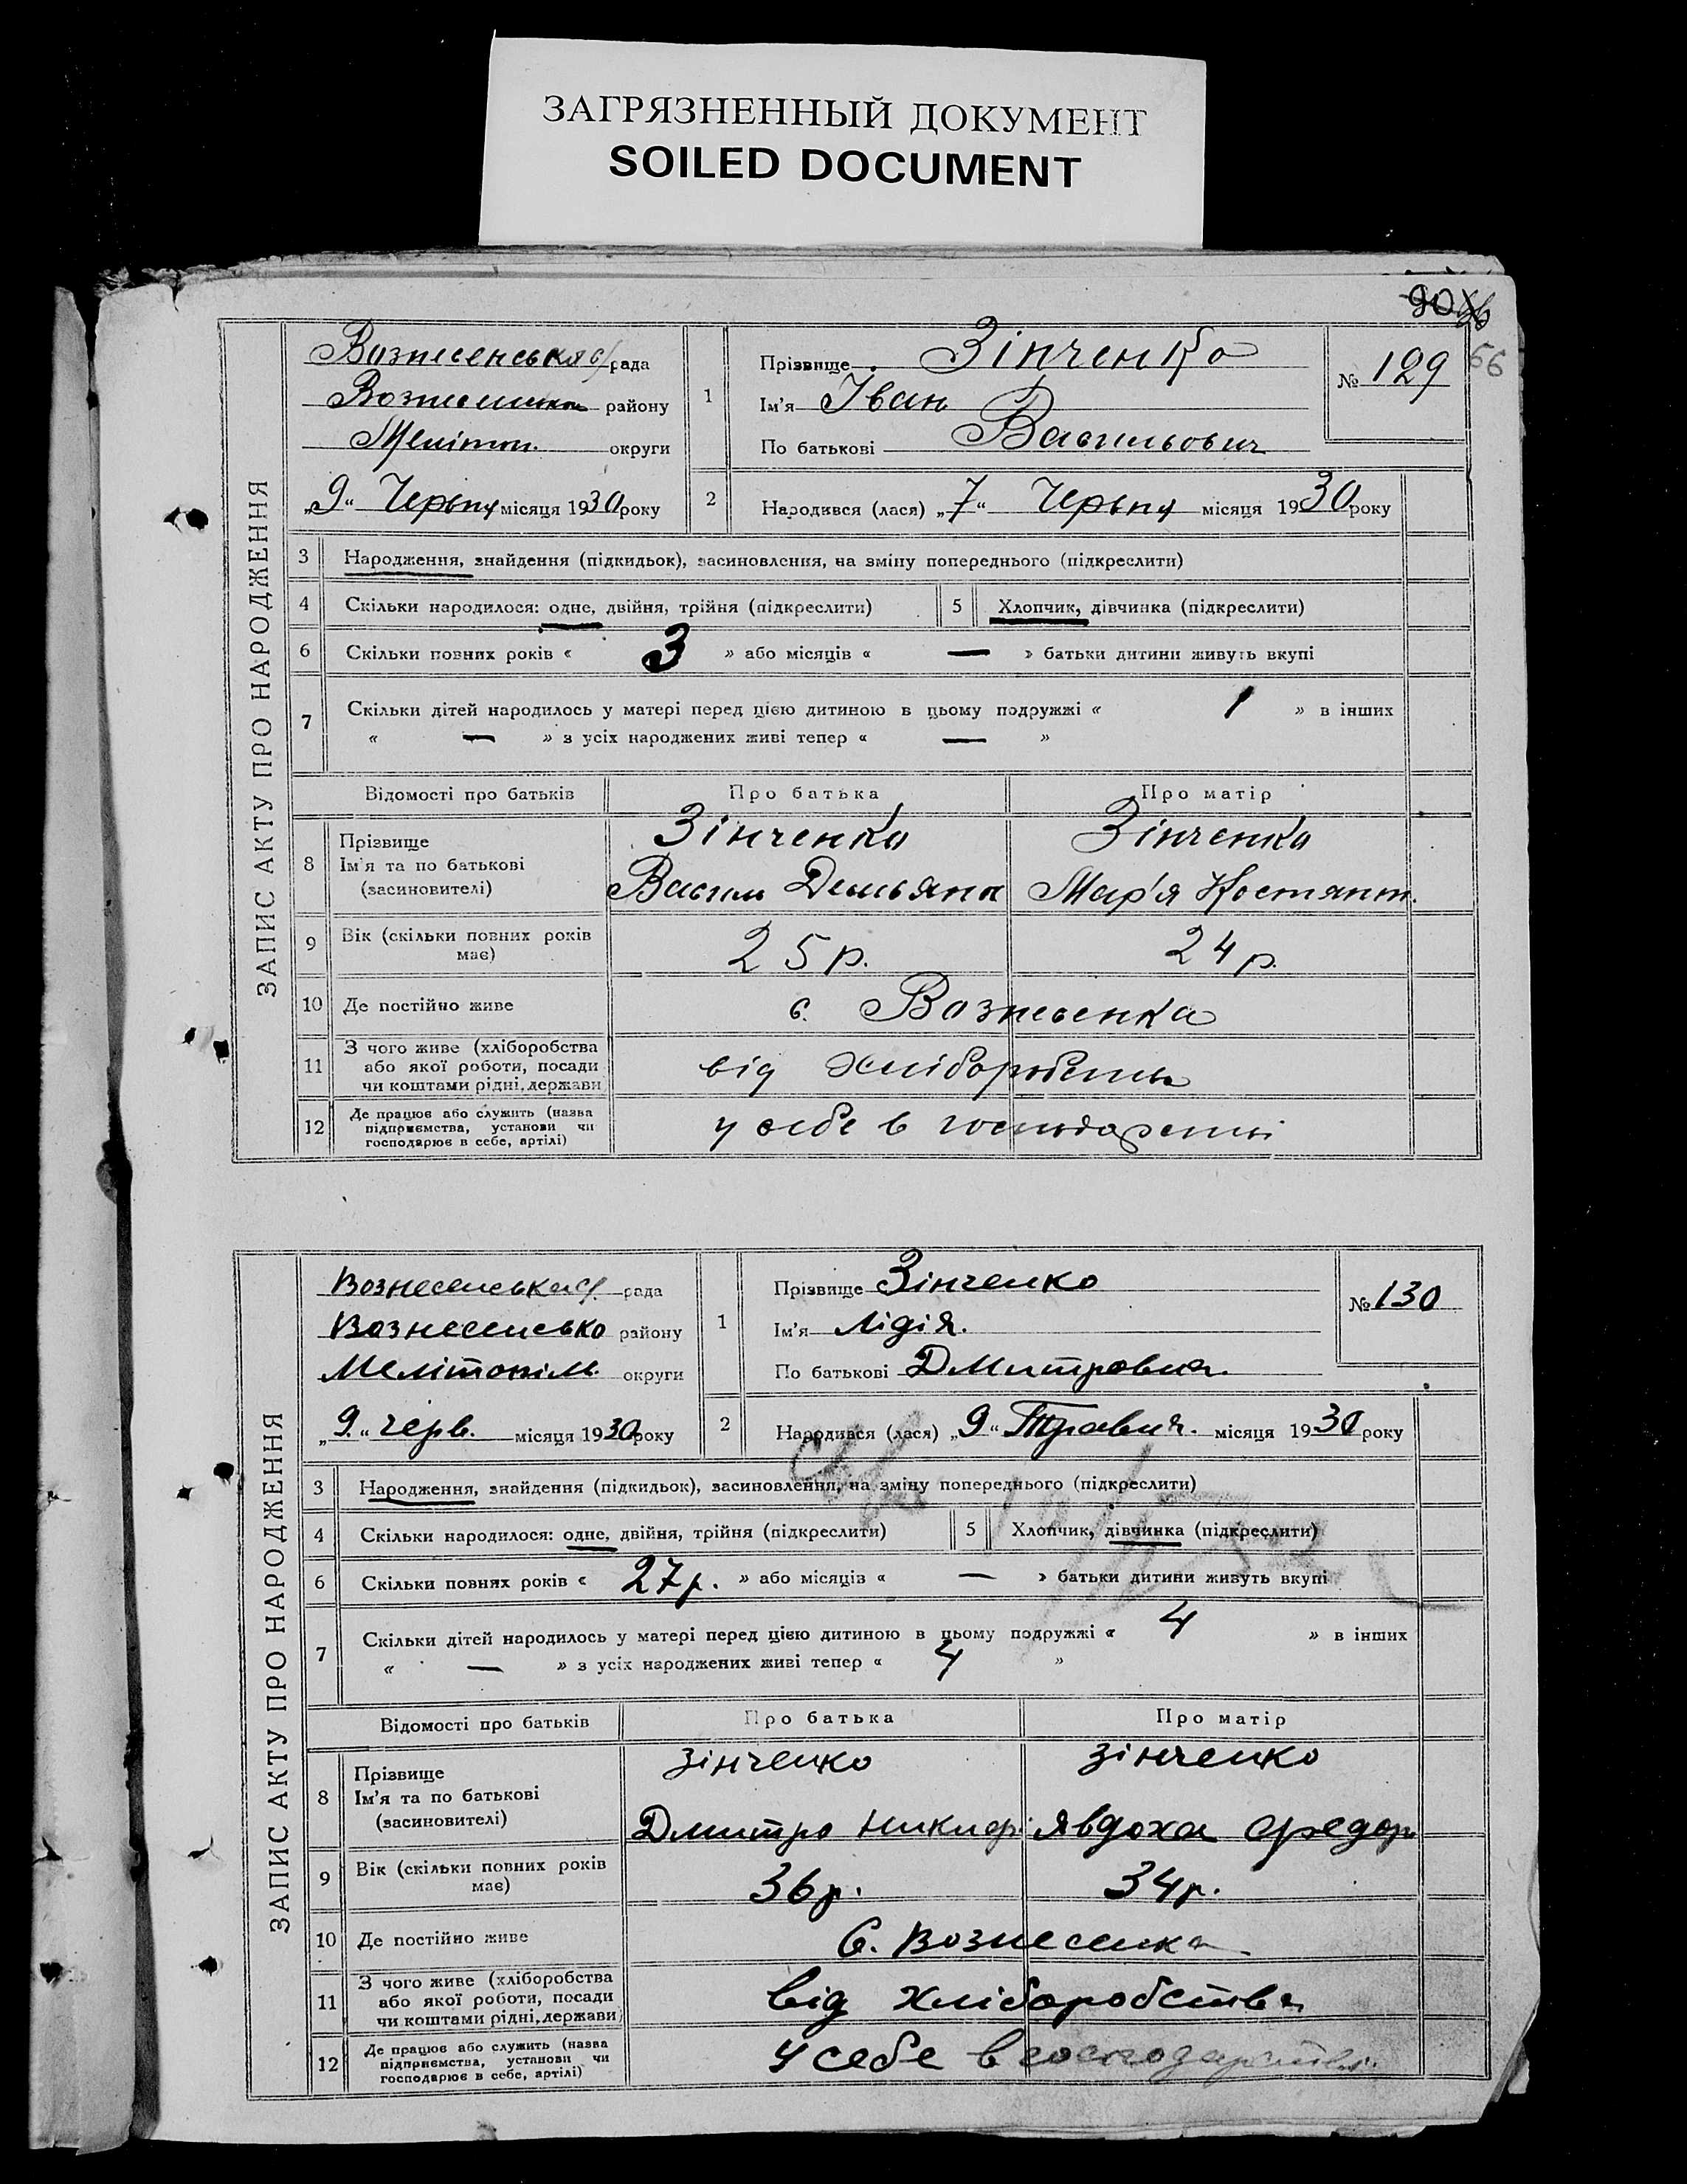 ЗАГРЯЗНЕННЫЙ ДОКУМЕНТ
SOILED DOCUMENT
90
66
ЗАПИС АКТУ ПРО НАРОДЖЕННЯ
Вознесенська с/рада
району
Меліт. округи
„9“ Червня місяця 1930 року
1 Прізвище Зінченко
Ім'я Іван
По батькові Васильович
№ 129
2 Народився (лася) „7“ Червня місяця 1930 року
3 Народження, знайдення (підкидьок), засиновлення, на зміну попереднього (підкреслити)
4 Скільки народилося: одне, двійня, трійня (підкреслити)
5 Хлопчик, дівчинка (підкреслити)
6 Скільки повних років « 3 » або місяців « — » батьки дитини живуть вкупі
7 Скільки дітей народилось у матері перед цією дитиною в цьому подружжі « 1 » в інших
« — » з усіх народжених живі тепер « — »
Відомості про батьків Про батька Про матір
8 Прізвище
Ім'я та по батькові
(засиновителі)
Зінченко
Василь Демьянов
Зінченко
Мар'я Костянт.
9 Вік (скільки повних років
має)
25 р. 24 р.
10 Де постійно живе с. Вознесенка
11 З чого живе (хліборобства
або якої роботи, посади
чи коштами рідні, держави
від хліборобства
12 Де працює або служить (назва
підприємства, установи чи
господарює в себе, артілі)
у себе в господарстві
ЗАПИС АКТУ ПРО НАРОДЖЕННЯ
Вознесенська с/ рада
Вознесенсько району
Мелітопіль. округи
„9.“ черв. місяця 1930 року
1 Прізвище Зінченко
Ім'я Лідія.
По батькові Дмитровна.
№ 130
2 Народився (лася) „9“ Травня. місяця 1930 року
3 Народження, знайдення (підкидьок), засиновлення, на зміну попереднього (підкреслити)
4 Скільки народилося: одне, двійня, трійня (підкреслити)
5 Хлопчик, дівчинка (підкреслити)
6 Скільки повних років « 27 р. » або місяців « — » батьки дитини живуть вкупі
7 Скільки дітей народилось у матері перед цією дитиною в цьому подружжі « 4 » в інших
« — » з усіх народжених живі тепер « 4 »
Відомості про батьків Про батька Про матір
8 Прізвище
Ім'я та по батькові
(засиновителі)
Зінченко
Дмитро Никиф.
Зінченко
Явдоха Федор
9 Вік (скільки повних років
має)
36 р. 34 р.
10 Де постійно живе С. Вознесенка
11 З чого живе (хліборобства
або якої роботи, посади
чи коштами рідні, держави
від хліборобства
12 Де працює або служить (назва
підприємства, установи чи
господарює в себе, артілі)
у себе в господарстві.